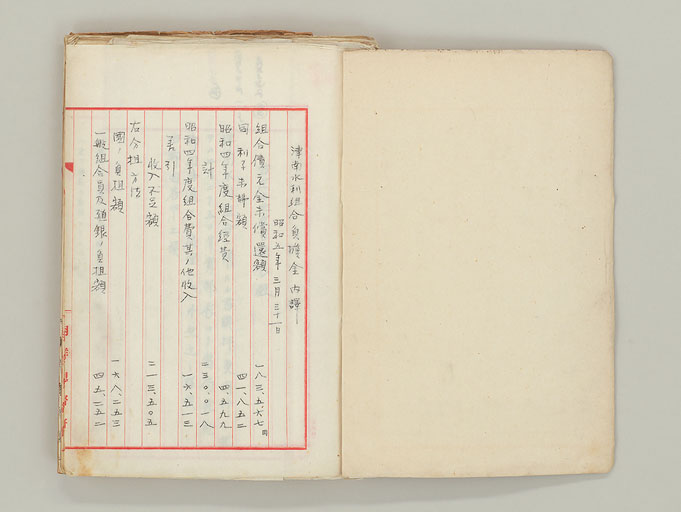 津南水利組合負擔金内譯
昭和五年三月三十一日
組合債元金未償還額 一八三、五六七円
同 利子未辨額 四一、八五二
昭和四年度組合経費 四、五九九
計 二三〇、〇一八
昭和四年度組合費其ノ他収入 一六、五一三
差引
収入不足額 二一三、五〇五
右分担方法
國ノ負担額 一六八、二五三
一般組合員及殖銀ノ負担額 四五、二五二